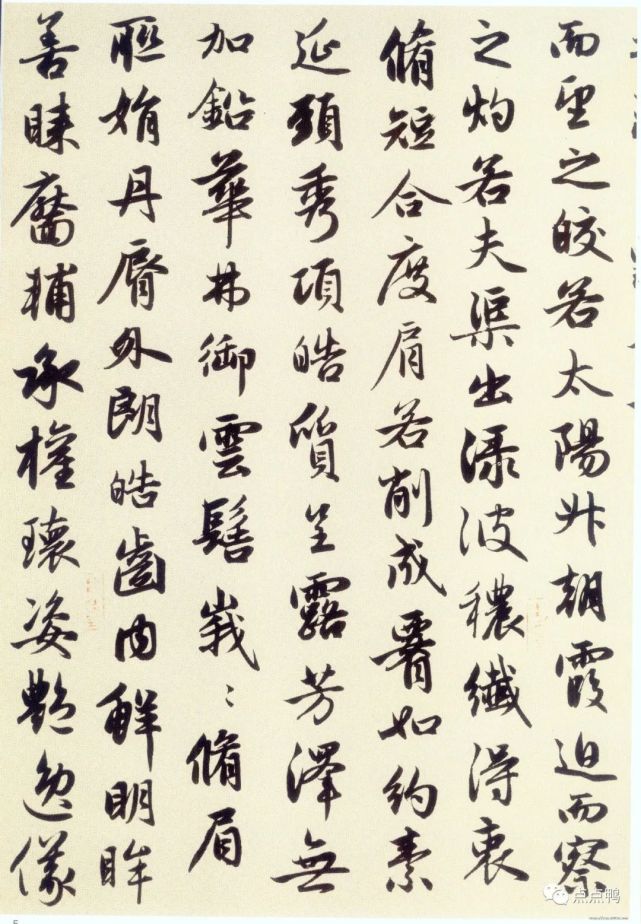 而望之皎若太陽升朝霞迫而察
之灼若夫渠出渌波穠纖得衷
脩短合度肩若削成䙅如約素
延頸秀項皓質呈露芳澤無
加鉛華弗御雲髻峩〻脩眉
聮娟丹脣外朗皓齒内鮮明眸
善睞靨輔承權瓌姿艶逸儀
点点鸭